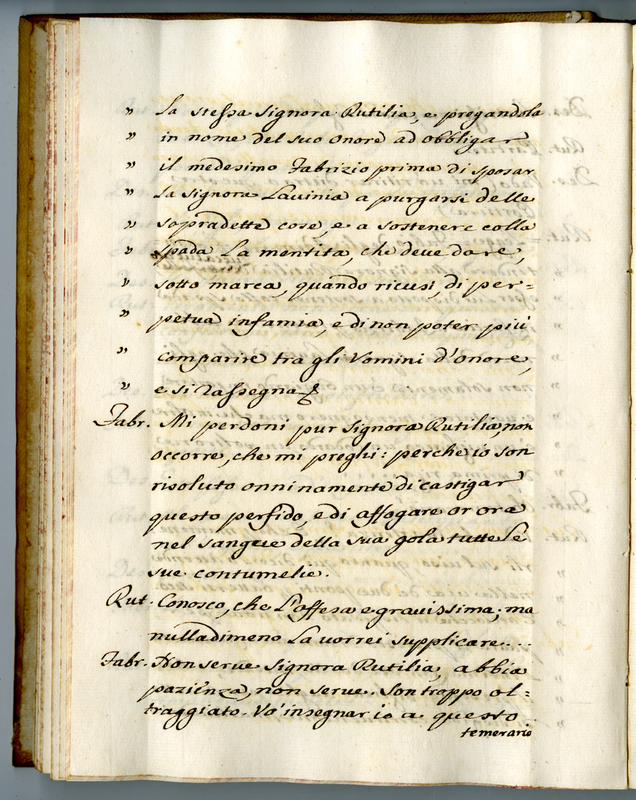 " la stessa Signora Rutilia, e pregandola
" in nome del suo onore ad obbligar
" il medesimo Fabrizio prima di sposar
" la Signora Lavinia a purgarsi delle
" sopradette cose, e a sostenere colla
" spada la mentita, che deve dare,
" sotto marca, quando ricusi, di per=
" petua infamia, e di non poter più
" comparire tra gli Uomini d'onore,
" e si rassegna &
Fabr. Mi perdoni pur Signora Rutilia, non
occorre, che mi preghi: perche io son
risoluto onninamente di castigar
questo perfido, e di affogare or ora
nel sangue della sua gola tutte le
sue contumelie.
Rut. Conosco, che l'offesa e gravissima; ma
nulladimeno la vorrei supplicare....
Fabr. Non serve Signora Rutilia, abbia
pazienza, non serve. Son troppo ol=
traggiato. Vo' insegnar io a questo
temerario